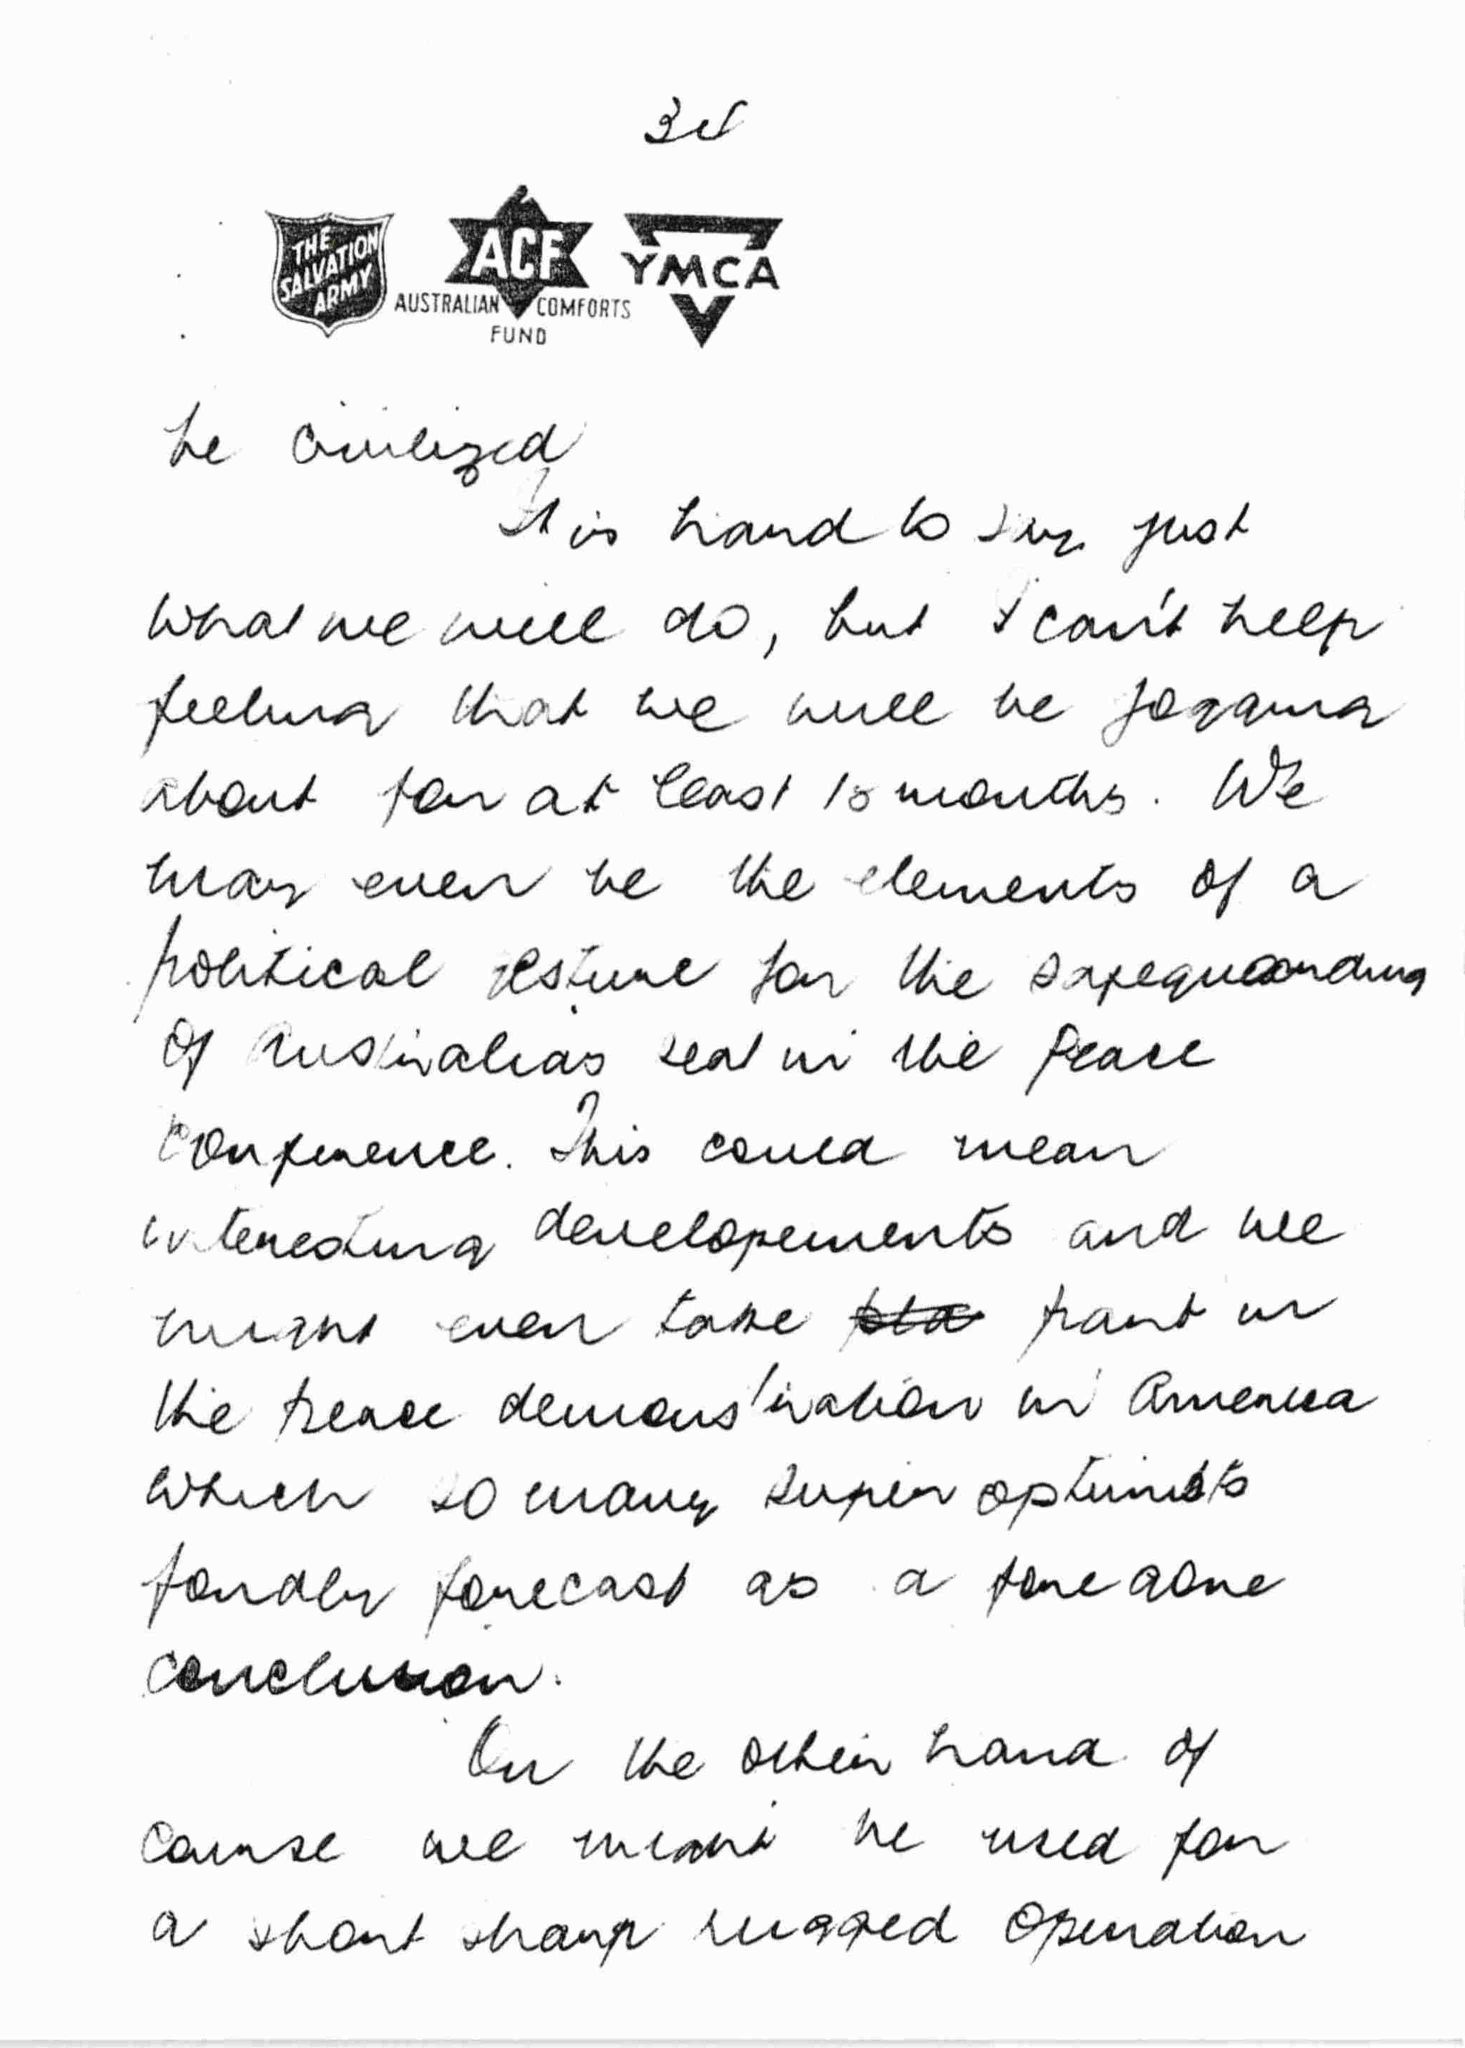 THE
SALVATION
ARMY
ACF
AUSTRALIAN COMFORTS
FUND
YMCA
be civilized
It is hard to say just
what we will do, but I can't help
feeling that we will be jogging
about for at least 18 months. We
may even be the elements of a
political gesture for the safeguarding
of Australias seat in the Peace
Conference. This could mean
interesting developements and we
might even take pla part in
the peace demonstration in America
which so many super optimists
fondly forecast as a fore gone
conclusion.
On the other hand of
course we might be used for
a short sharp rugged operation